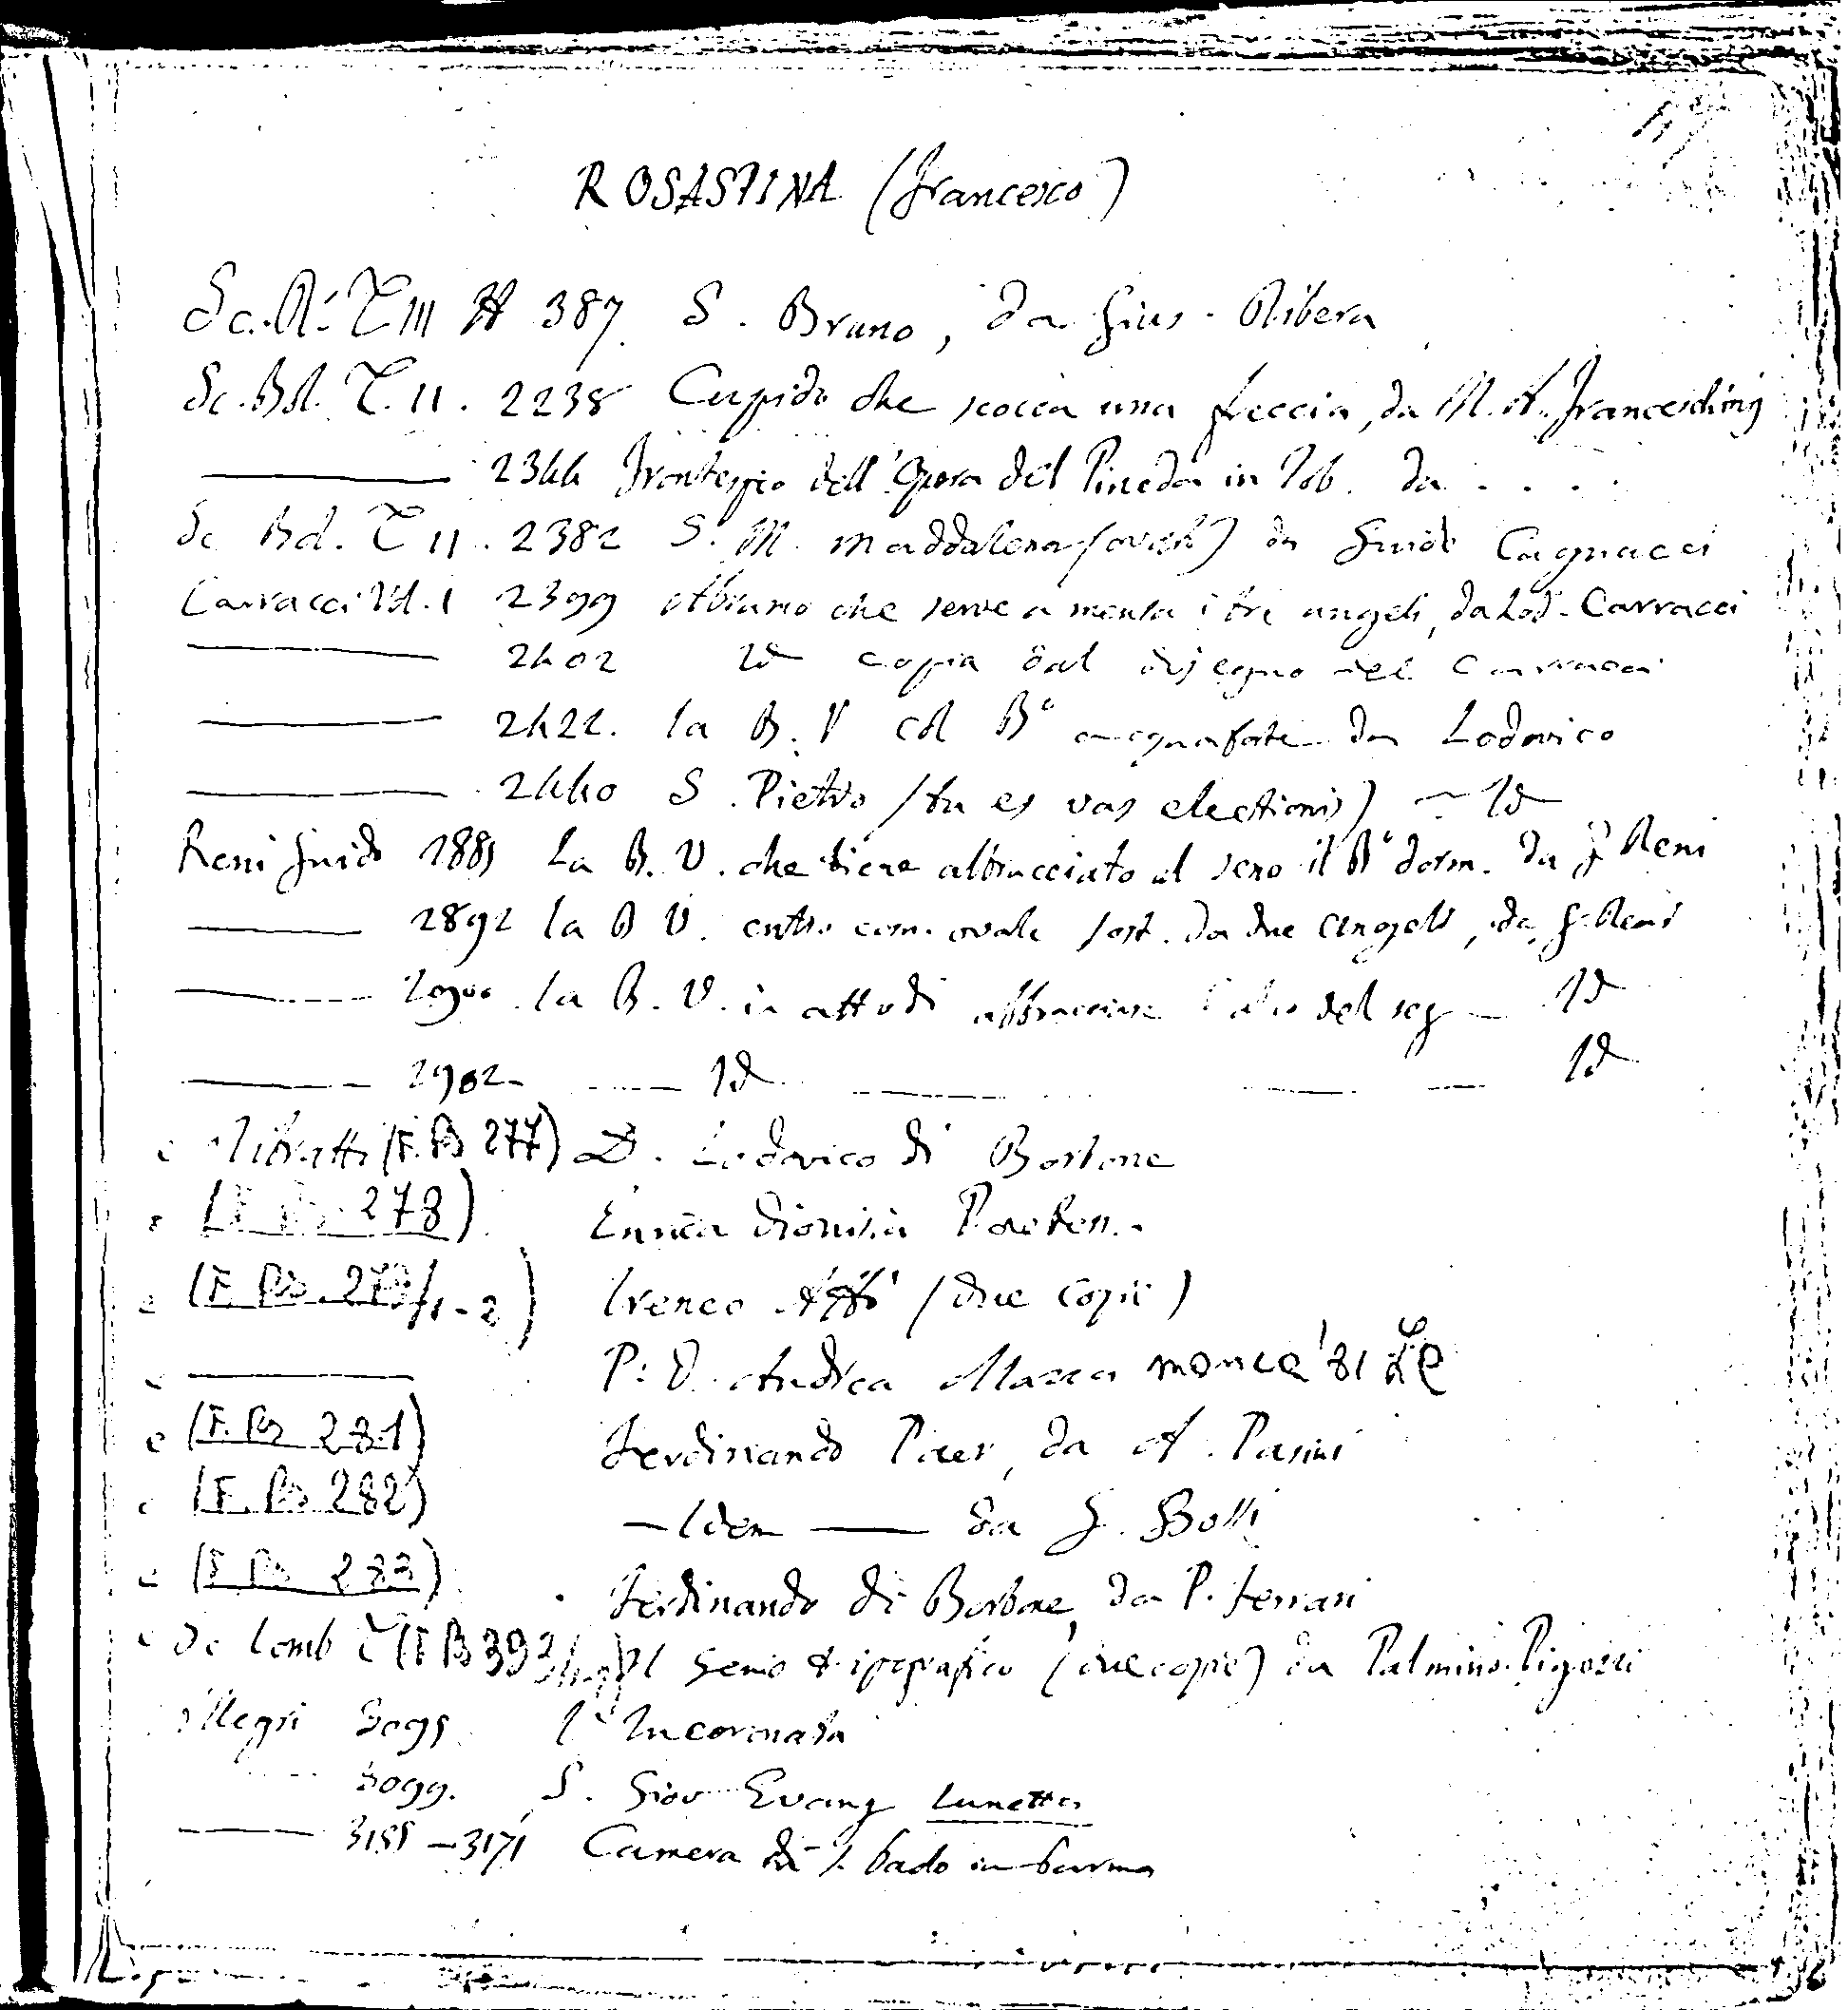 ROSASPINA (Francesco)
Sc. R. T. III H 387 S. Bruno, da Gius. Ribera
Sc. Bol. T. II. 2238 Cupido che scocca una freccia, da M. A. Franceschini
——— 2344 Frontespio dell'Opera del Pineda in Iob. da . . . .
Sc Bol. T II. 2382 S. M. Maddalena (ovale) da Guido Cagnacci
Carracci Vol. I 2399 Abramo che serve a mensa i tre angeli, da Lod. Carracci
——— 2402 Id copia dal disegno del Carracci
——— 2422. la B. V col B° acquaforte da Lodovico
——— 2440 S. Pietro (tu es vas electionis) — Id
Reni Guido 2885 La B. V. che tiene abbracciato al seno il B° dorm. da G. Reni
——— 2892 la B V. entro corn. ovale sost. da due angeli, da G. Reni
——— 2900. la B. V. in atto di abbracciare del seg — Id
——— 2902 — Id — — — Id
e Ritratti (F. B 277) D. Lodovico di Borbone
e (F. B. 278) Enrica Dionisia
e (F. B. 279/1-2) Ireneo Affò (due copie)
e ——— P. V. Andrea Mazza manca '81
e (F. B 281) Ferdinando Paer, da A. Pasini
e (F. B 282) — Idem — da G. Bolli
e (F. B 283) Ferdinando di Borbone da P. Ferrari
e Sc Lomb T (F B 393/1-2) Il Genio tipografico (due copie) da Palmino Pigozzi
Allegri 3095 l'Incoronata
3099. S. Giov Evang Lunetta
——— 3155 – 3171 Camera di S. Paolo in Parma